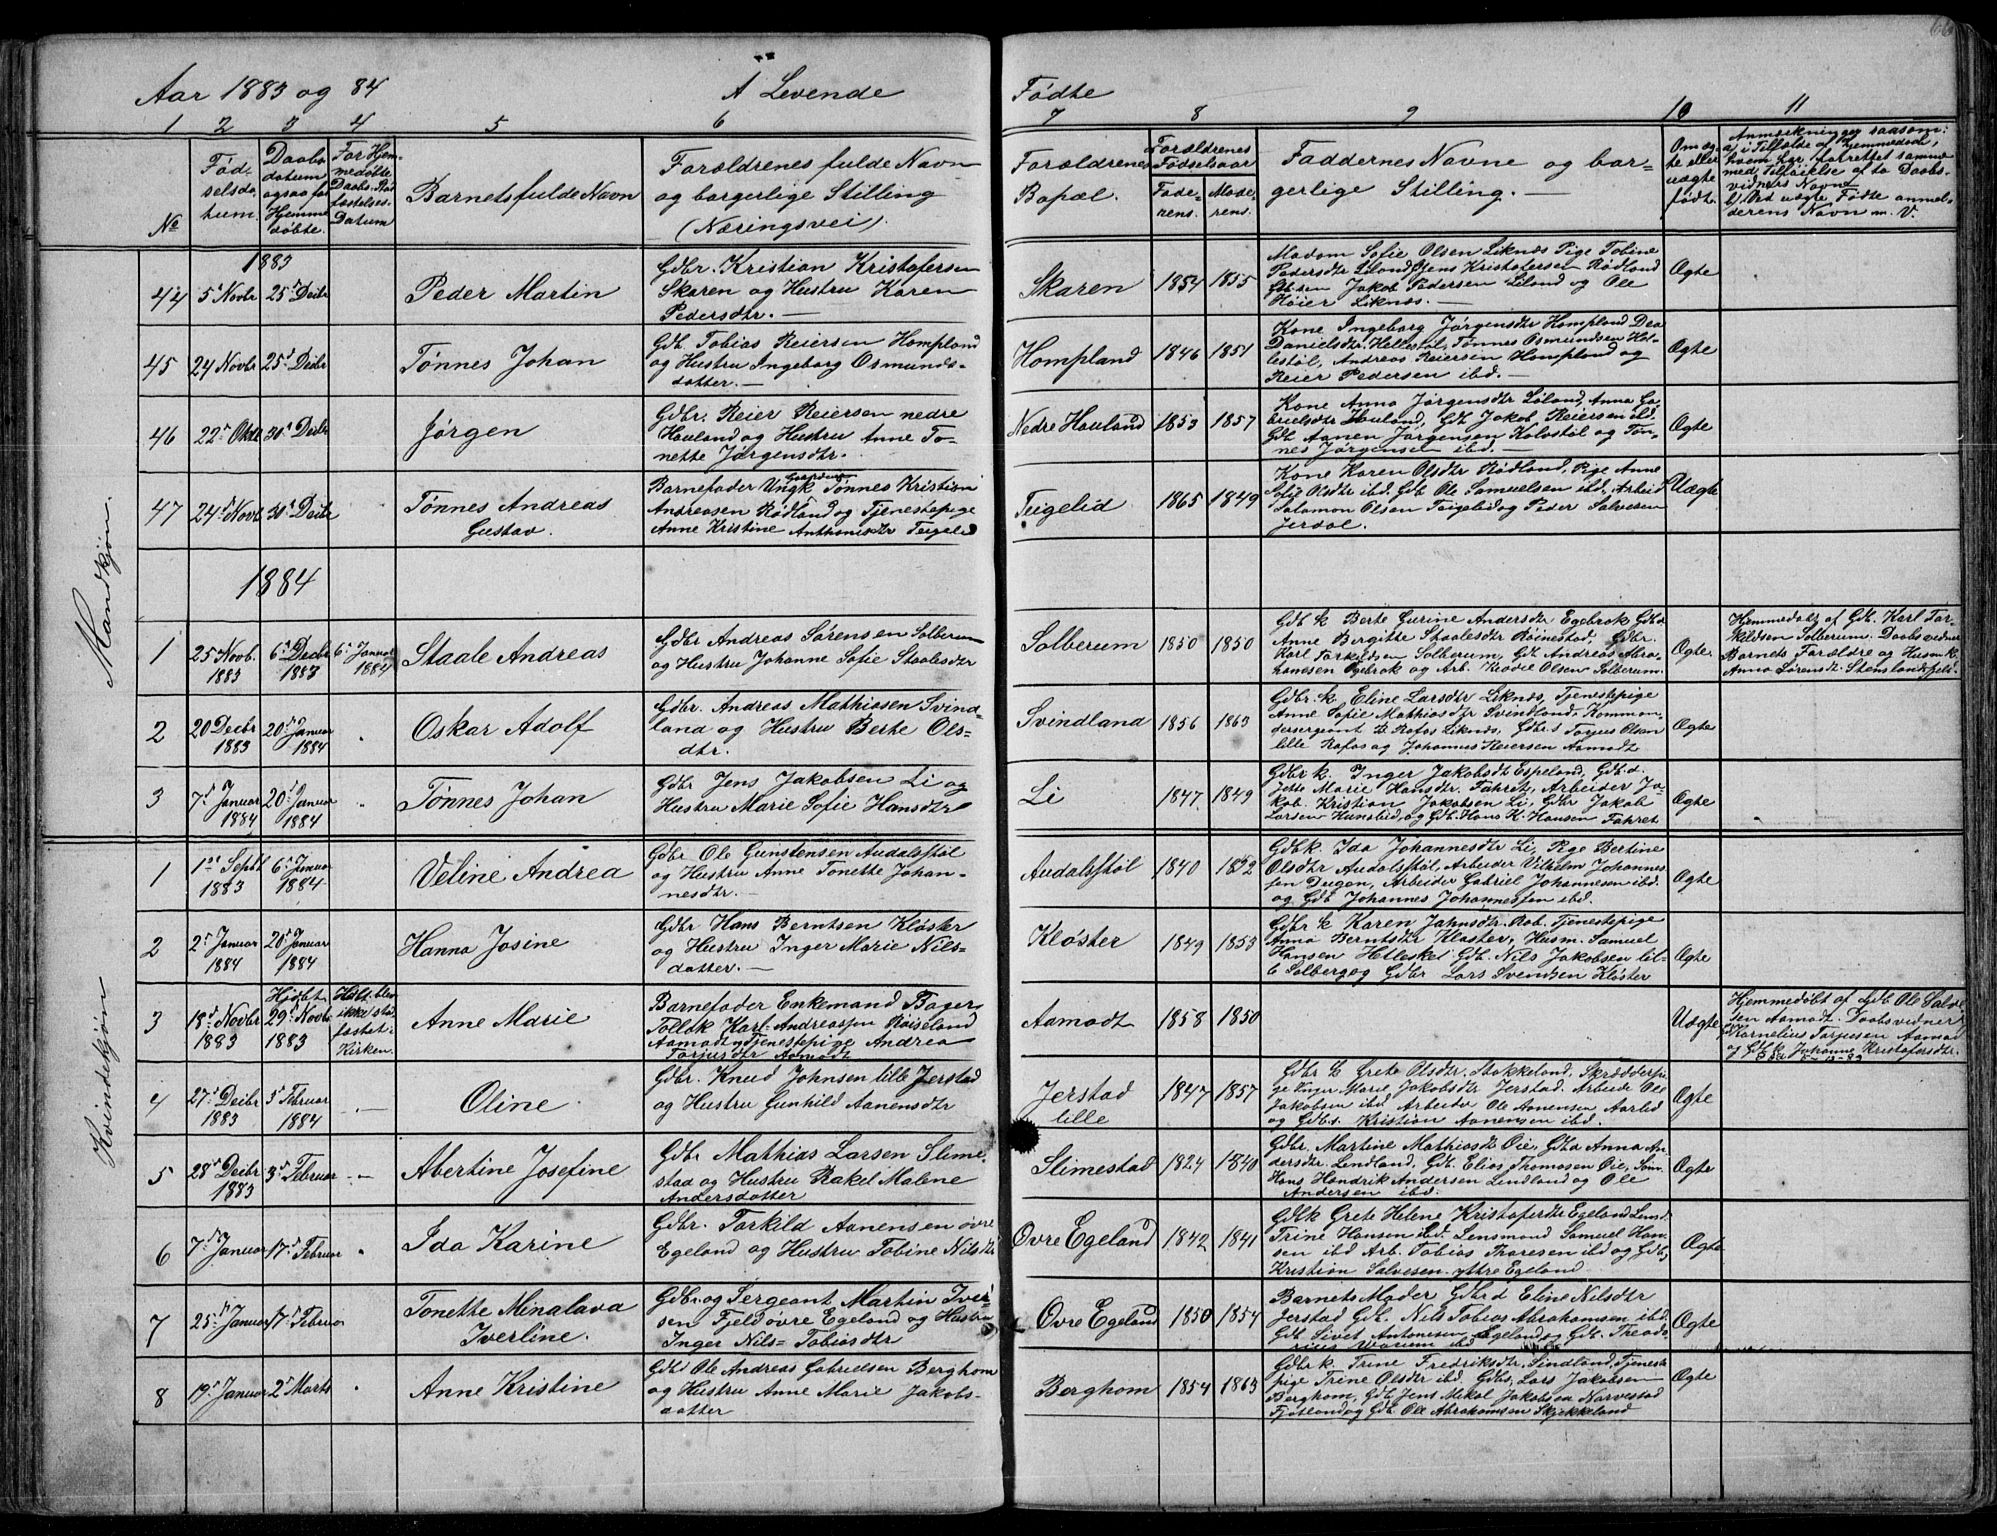 66
Aar 1883 og 84
A Levende
Fødte
1 2 3 4 5 6 7 8 9 10 11
№
Fød-
selsda-
tum.
Daabs
datum
ogsaa for
Hjemme
døbte.
For Hjem-
medøbte
Daabs. Stad
fæstelses-
Datum
Barnets fulde Navn
Forældrenes fulde Navn
og borgerlige Stilling
(Næringsvei)
Forældrenes
Bopæl.
Forældrenes
Fødselsaar
Fade-
rens.
Mode-
rens.
Faddernes Navne og bor=
gerlige Stilling. —
Om æg-
te eller
uægte
født.
Anmærkninger saasom:
a, i Tilfælde af Hjemmedaab,
hvem har forrettet samme
med Tilføielse af to Daabs-
vidners Navne
b, Ved uægte Fødte anmel-
derens Navn m. V.
Mandkjøn.
1883
44
5' Novbr
25' Decbr
Peder Martin
Gdbr. Kristian Kristofersen
Skaren og Hustru Karen
Pedersdtr. —
Skaren
1854
1855
Madam Sofie Olsen Liknæs Pige Tobine
Pedersdtr Liland, Jens Kristofersen Rødland
Gdbsen Jakob Pedersen Liland og Ole
Høier Liknæs. —
Ægte
45
24 Novbr
25' Decbr
Tønnes Johan
Gdb. Tobias Reiersen Hompland
og Hustru Ingeborg Osmunds-
datter. —
Hompland
1846
1851
Kone Ingeborg Jørgensdtr Hompland Dea
Danielsdtr Hellestøl, Tønnes Osmundsen Hel-
lestøl, Andreas Reiersen Hompland og
Reier Pedersen ibd. —
Ægte
46
22' Okt
30' Decbr
Jørgen
Gdbr. Reier Reiersen nedre
Houland og Hustru Anne To-
nette Jørgensdtr.
Nedre Houland
1853
1857
Kone Anna Jørgensdtr Løland, Anna Ga-
brielsdtr Houland, Gdb Jakob Reiersen ibd.
Gdb. Aanen Jørgensen Kolvstøl og Tøn-
nes Jørgensen ibd. —
Ægte
47
24' Novb.
30' Decbr
Tønnes Andreas
Gustav.
Barnefader Ungk Tønnes Kristian
Andreasen Rødland og Tjenestepige
Anne Kristine Anthonisdtr Teigelid
Teigelid
1865
1849
Kone Karen Olsdtr Rødland, Pige Anne
Sofie Olsdtr ibd. Gdb Ole Samuelsen ibd, Arbeid
Salomon Olsen Teigelid og Peder Salvesen
Jerdal.
Uægte
1884
1
25' Novb.
1883
6' Decbr
1883
6' Januar
1884
Staale Andreas
Gdbr Andreas Sørensen Solberum
og Hustru Johanne Sofie Staalesdtr
Solberum
1850
1850
Gdb k Berte Gurine Andersdtr Egebrok Gdb d
Anne Bergitte Staalesdtr Røinestad, Gdbr.
Karl Torkildsen Solberum, Gdb Andreas Abra-
hamsen Egebrok og Arb. Olsen Solberum
Ægte
Hjemmedøbt af Gdb. Karl Tor-
kildsen Solberum. Daabsvidner
Barnets Forældre og Husm. k.
Anna Sørensdt. Stenslandsfjeld.
2
20 Decbr
1883
20' Januar
1884
Oskar Adolf
Gdbr. Andreas Mathiasen Svind-
land og Hustru Berte Ols=
dtr.
Svindland
1856
1863
Gdbr. k. Eline Larsdtr Liknæs, Tjenestepige
Anne Sofie Mathiasdtr Svindland, Komman-
dersergeant B. Rafos Liknæs, Gdbr.s Torjus Olsen
lille Rafos og Johannes Reiersen Aamodt
Ægte
3
7' Januar
1884
20' Januar
1884
Tønnes Johan
Gdbr Jens Jakobsen Li og
Hustru Marie Sofie Hansdtr
Li
1847
1849
Gdbr k. Inger Jakobsdt Espeland, Gdb. d.
Marie Hansdtr. Fahret, Arbeider Ja-
kob. Kristian Jakobsen Li, Gdbr Jakob
Larsen Hunsbed, og Gdb. Hans K. Hansen Fahret
Ægte
Kvindekjøn
1
1' Septb
1883
6' Januar
1884
Veline Andrea
Gdbr. Ole Gunstensen Audalsstøl
og Hustru Anne Tonette Johan-
nesdtr. —
Audalsstøl
1840
1852
Gdb k. Ida Johannesdtr Li, Pige Bertine
Olsdtr Audalsstøl, Arbeider Vilhelm Johannes-
sen Dugen, Arbeider Gabriel Johannesen ibd.
og Gdb Johannes Johannessen ibd.
Ægte
2
2' Januar
1884
20' Januar
1884
Hanna Josine
Gdbr Hans Berntsen Kløster
og Hustru Inger Marie Nils-
datter. —
Kløster
1849
1853
Gdbr k Karen Jahnsdtr. Rob, Tjenestepige
Anna Berntsdtr Kløster, Husm. Samuel
Hansen Helleskel Gdb. Nils Jakobsen lil-
le Solberg og Gdbr Lars Svendsen Kløster
Ægte
3
18' Novbr
1883
Hjdøbt
29' Novb.
1883
Hdbt. blev
ikke stad
fæstet i
Kirken.
Anne Marie
Barnefader Enkemand Bager
Tollak Karl Andreassen Røiseland
Aamodt og Tjenestepige Andrea
Torjusdtr Aamodt
Aamodt
1858
1850
Uægte
Hjemmedøbt af Gdb Ole Salve-
sen Aamodt. Daabsvidner
Kornelius Torjusen Aamodt
og Gdb k Johanne Kristofersdtr.
4
27' Decbr
1883
3' Februar
1884
Oline
Gdbr. Knud Johnsen lille Jerstad
og Hustru Gunhild Aanensdtr
Jerstad
lille
1847
1857
Gdbr k Grete Olsdtr. Stokkeland, Skrædderpi-
ge Inger Marie Jakobsdtr Jerstad. Arbeide Ole
Jakobsen ibd. Arbeider Ole Aanensen Aarlid
og Gdb.s. Kristian Aanensen ibd.
Ægte
5
28' Decbr
1883
3' Februar
Abertine Josefine
Gdbr. Mathias Larsen Slime
stad og Hustru Rakel Malene
Andersdatter
Slimestad
1824
1840
Gdbr. Martine Mathiasdt Oie, Gb d Anna An-
dersdtr. Lindland, Gdb. Elias Thomasen Oie, Søn
Hans Hendrik Andersen Lindland og Ole
Andersen ibd.
Ægte
6
7' Januar
17' Februar
Ida Karine
Gdbr. Torkild Aanensen øvre
Egeland og Hustru Tobine Nilsdtr
Ovre Egeland
1842
1841
Gdb k Grete Helene Kristofersdtr Egeland
Trine Hansen ibd. Lensmand Samuel Han-
sen ibd Arb. Tobias Thoresen ibd og Gdb,
Kristian Salvesen yttre Egeland
Ægte
7
25' Januar
17' Februar
Tonette Minalava
Iverline.
Gdbr. og Sergeant Martin Iver-
sen Fjeld øvre Egeland og Hustru
Inger Nils= Tobiasdtr
Ovre Egeland
1850
1854
Barnets Moder Gdbr d Eline Nilsdtr
Jerstad Gdb. Nils Tobias Abrahamsen ibd.
Gdb Sivert Antonesen Egeland og Gdb. Theodo-
ibd
Ægte
8
19' Januar
2' Marts
Anne Kristine
Gdb Ole Andreas Gabrielsen Berghom
og Hustru Anne Marie Jakobs-
datter
Berghom
1854
1863
Gdbr k. Trine Fredriksdtr. Sindland, Tjenest-
pige Trine Olsdtr ibd. Gdbs, Lars Jakobsen
Berghom, Gdb Jens Mikal Jakobsen Narvestad
Fjotland og Gdb Ole Abrahamsen Skjekkeland
Ægte